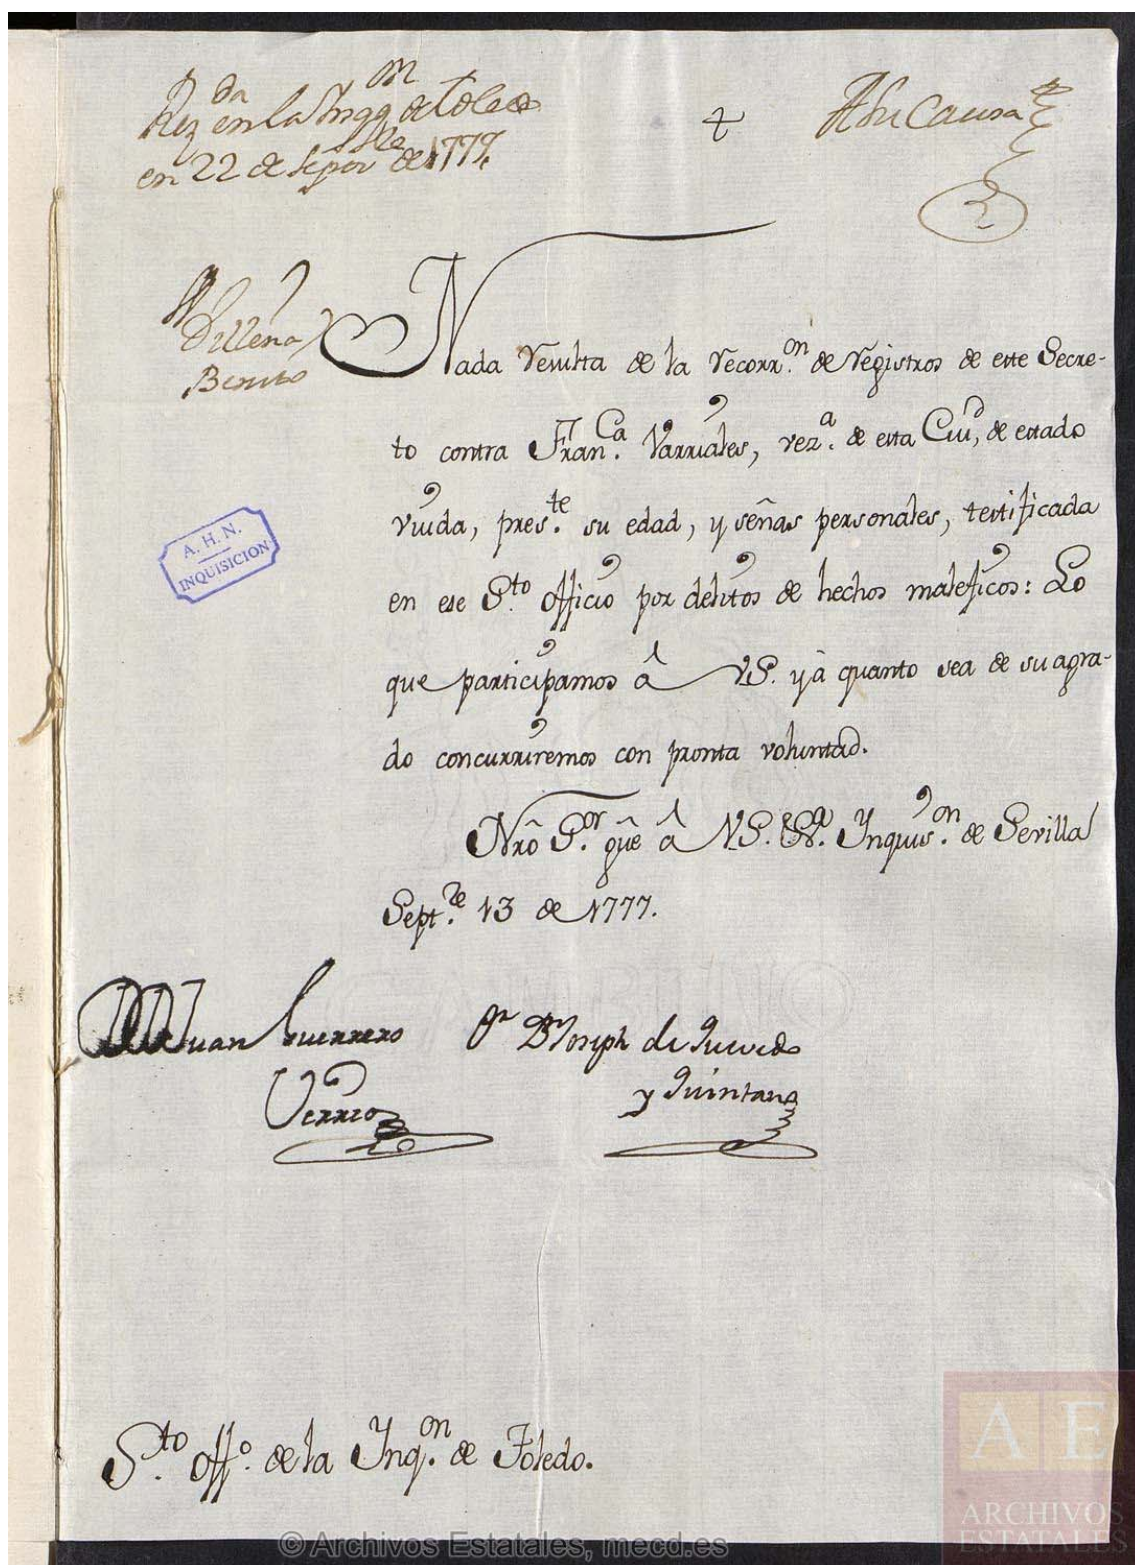 Rez.da en la Inqq.on de Toledo
en 22 de Sepbre de 1777.
+
A su Causa
Villena
Benito
Nada resulta de la recorr.on de registros de este Secre-
to contra Fran.ca Varriales, vez.a de esta Ciud, de estado
viuda, pres.te su edad, y señas personales, testificada
en ese S.to Officio por delitos de hechos maleficos: Lo
que participamos â VS. y â quanto sea de su agra-
do concurriremos con pronta voluntad.
Nrô S.or gûe â V.S. Inquis.on de Sevilla
Sept.re 13 de 1777.
Juan Guerrero
Or. Dn Joseph de Quevedo
Verrio
y Quintano
S.to Off.o de la Ynq.on de Toledo.
A. H. N.
INQUISICION
AE
ARCHIVOS
ESTATALES
© Archivos Estatales, mecd.es